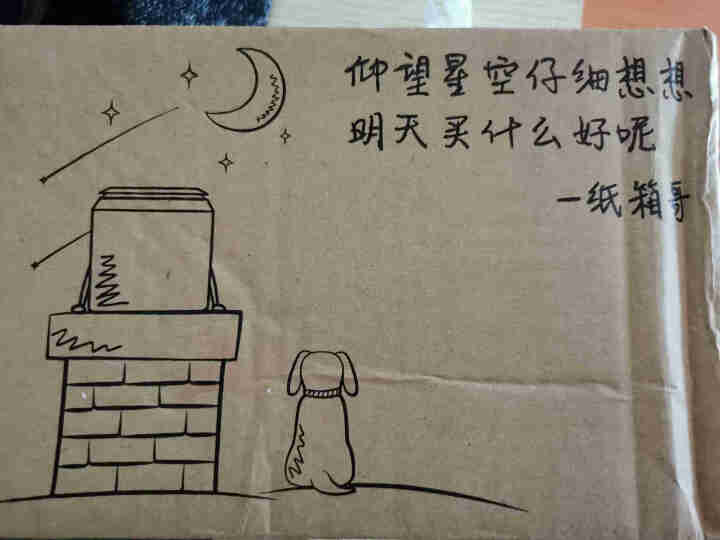 仰望星空仔细想想
明天买什么好呢
一纸箱哥